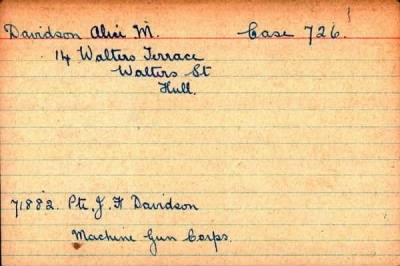 Davidson Alice M. Case 726.
14 Walters Terrace
Walters St
Hull.
71882. Pte J. H Davidson
Machine Gun Corps.